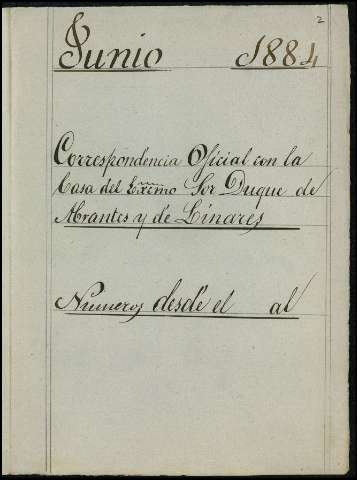 2
Junio 1884
Correspondencia Oficial con la
Casa del Excmo Sor Duque de
Abrantes y de Linares
Numeros desde el al